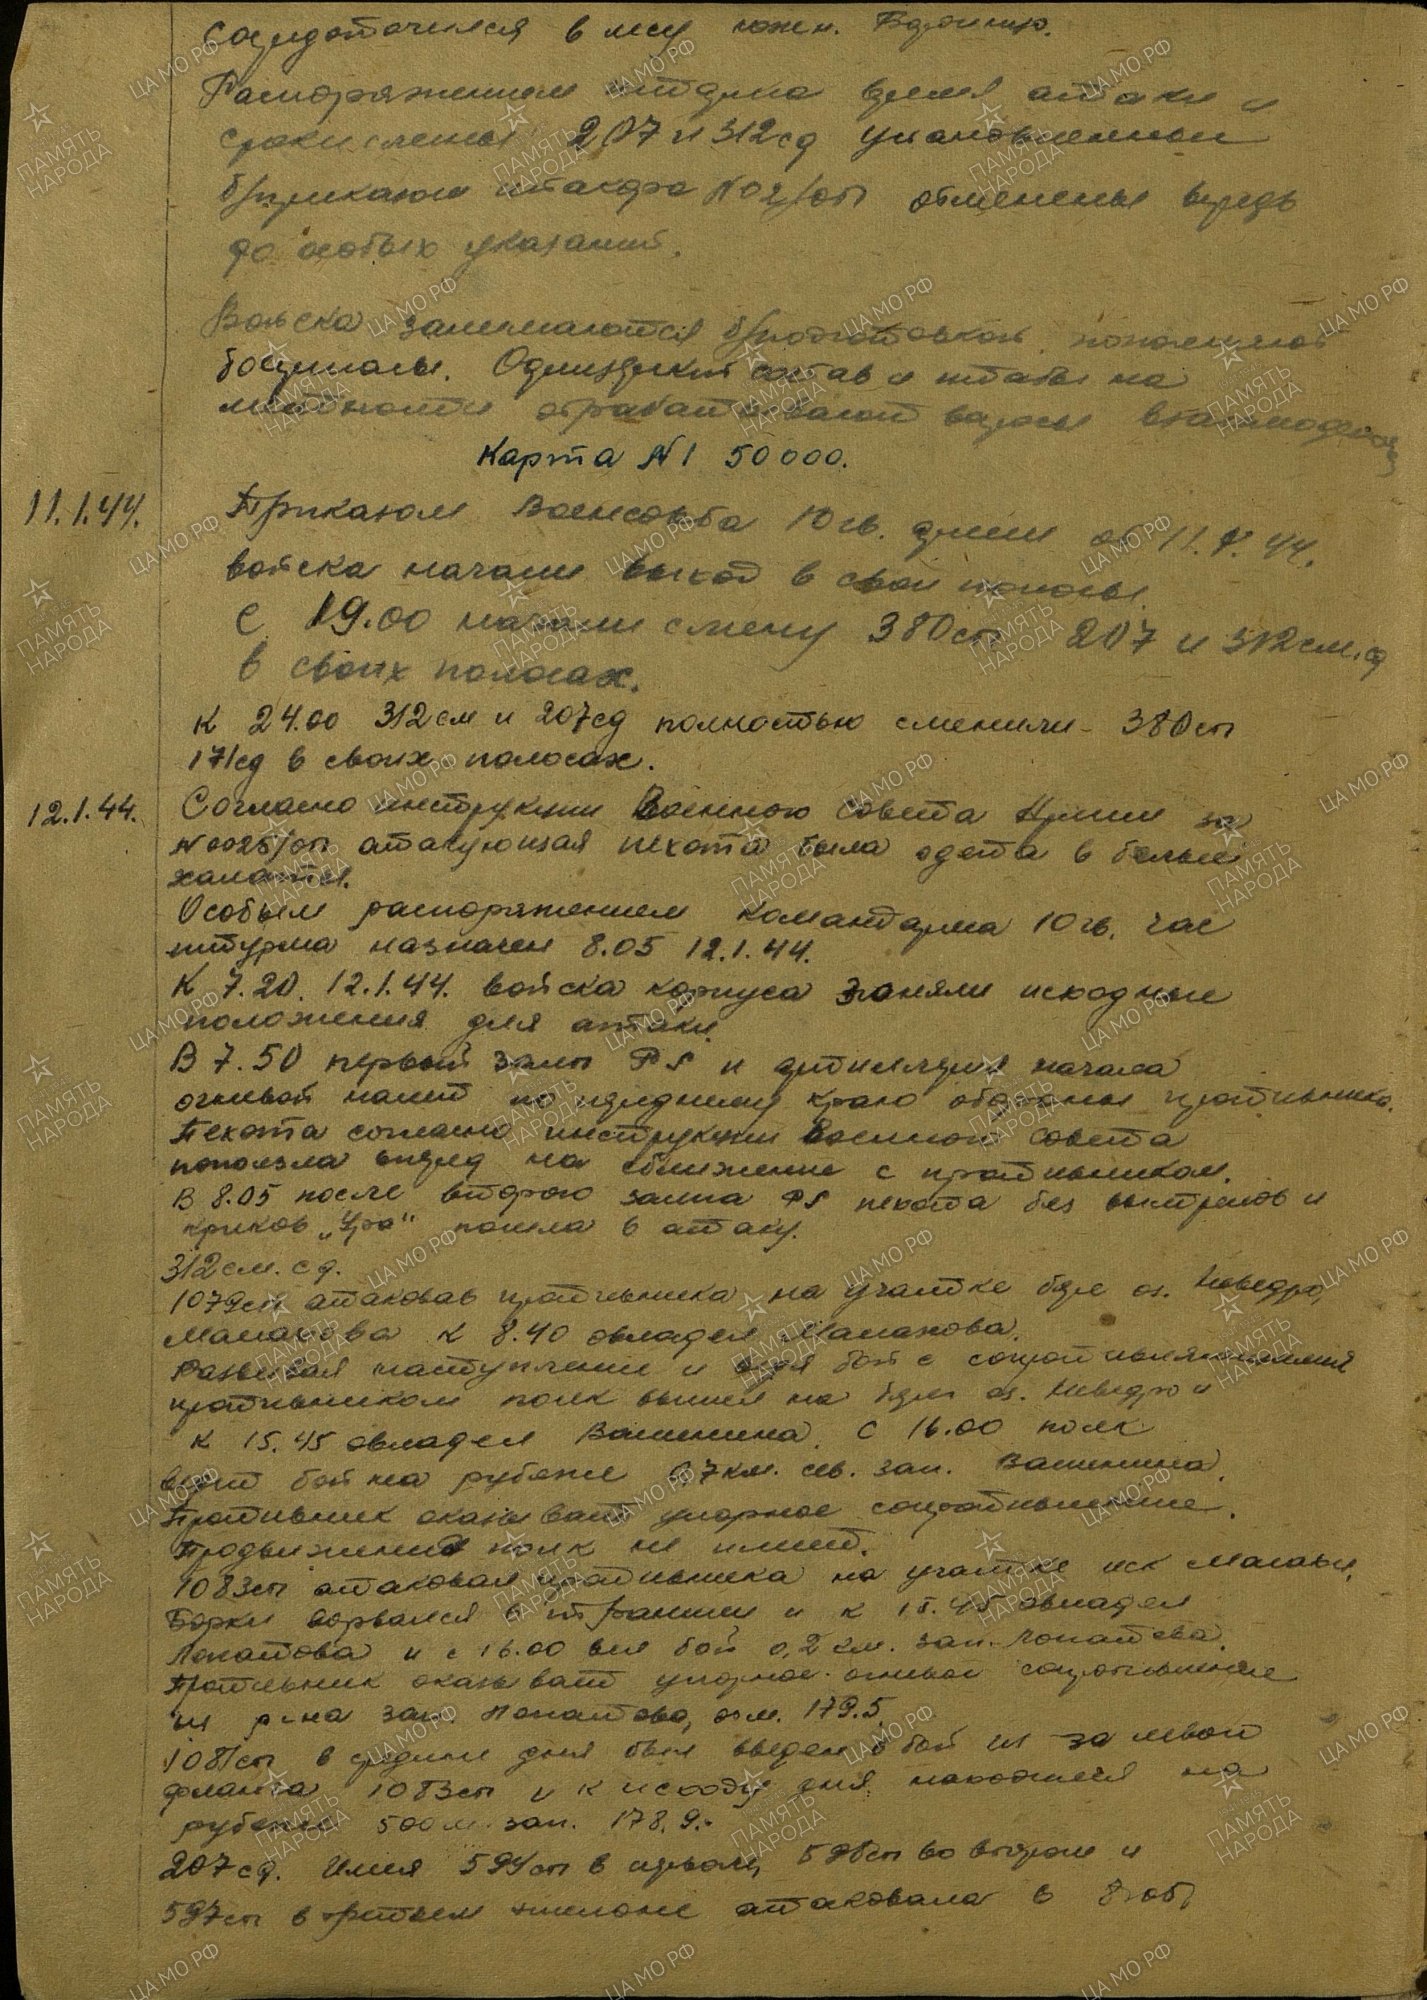 Сосредоточился в лесу южн.
Распоряжением штарма время атаки и
сроки смены 207 и 312сд установленной
б/приказом штакора №02/оп отменены впредь
до особых указаний.
Войска занимаются б/подготовкой, пополняют
боеприпасы. Офицерский состав и штабы на
местности отрабатывают вопросы взаимодействия
Карта №1 50000.
11.1.44. Приказом Военсовета 10 гв. армии от 11.1.44.
войска начали выход в свои полосы.
С 19.00 начали смену 380сп 207 и 312см.сд
в своих полосах.
К 24.00 312см и 207сд полностью сменили 380сп
171сд в своих полосах.
12.1.44. Согласно инструкции Военного Совета Армии за
№0025/оп атакующая пехота была одета в белые
халаты.
Особым распоряжением Командарма 10 гв. час
штурма назначен 8.05 12.1.44.
К 7.20. 12.1.44. войска корпуса заняли исходные
положения для атаки.
В 7.50 первый залп РС и артиллерия начала
огневой налет по переднему краю обороны противника.
Пехота согласно инструкции Военного Совета
поползла вперед на сближение с противником.
В 8.05 после второго залпа РС пехота без выстрелов и
криков „Ура" пошла в атаку.
312см. сд.
1079сп атаковав противника на участке бер. оз. Неведро,
Маланова к 8.40 овладел Маланова.
Развивая наступление и ведя бой с сопротивляющимся
противником полк вышел на берег оз. Неведро и
к 15.45 овладел Ванинина. С 16.00 полк
ведет бой на рубеже 0,7км. сев. зап. Ванинина.
Противник оказывает упорное сопротивление.
Продвижения полк не имеет.
1083сп атаковал противника на участке иск
Борки ворвался в траншеи и к 15.45 овладел
Лопатова и с 16.00 вел бой 0,2 км. зап. Лопатова.
Противник оказывает упорное огневое сопротивление
из р-на зап. Лопатово, отм. 179.5.
1081сп в средине дня был введен в бой из за левого
фланга 1083сп и к исходу дня находился на
рубеже 500м. зап. 178.9.
207сд. Имея 594сп в первом, 598сп во втором и
597сп в третьем эшелоне атаковала в 8.05